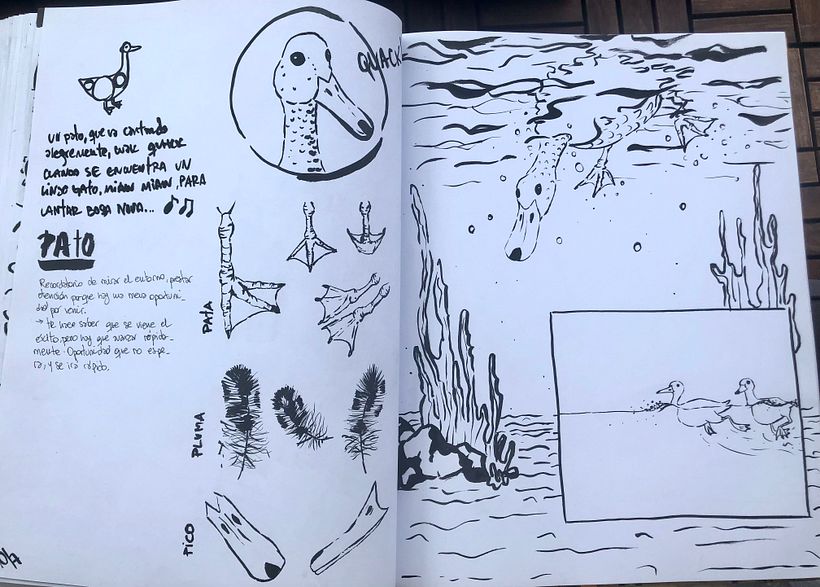 QUACK
UN pato, que va cantando
alegremente, cuac quack
CUANDO SE ENCUENTRA UN
LINDO GATO, MIAW MIAW, PARA
CANTAR BOSA NOVA...
PATO
Recordatorio de mirar el entorno, prestar
atención porque hay una nueva oportuni-
dad por venir.
→ te hace saber que se viene el
éxito, pero hay que avanzar rápida-
mente. Oportunidad que no espe-
ra, y se irá rápido.
PATA
PLUMA
PICO